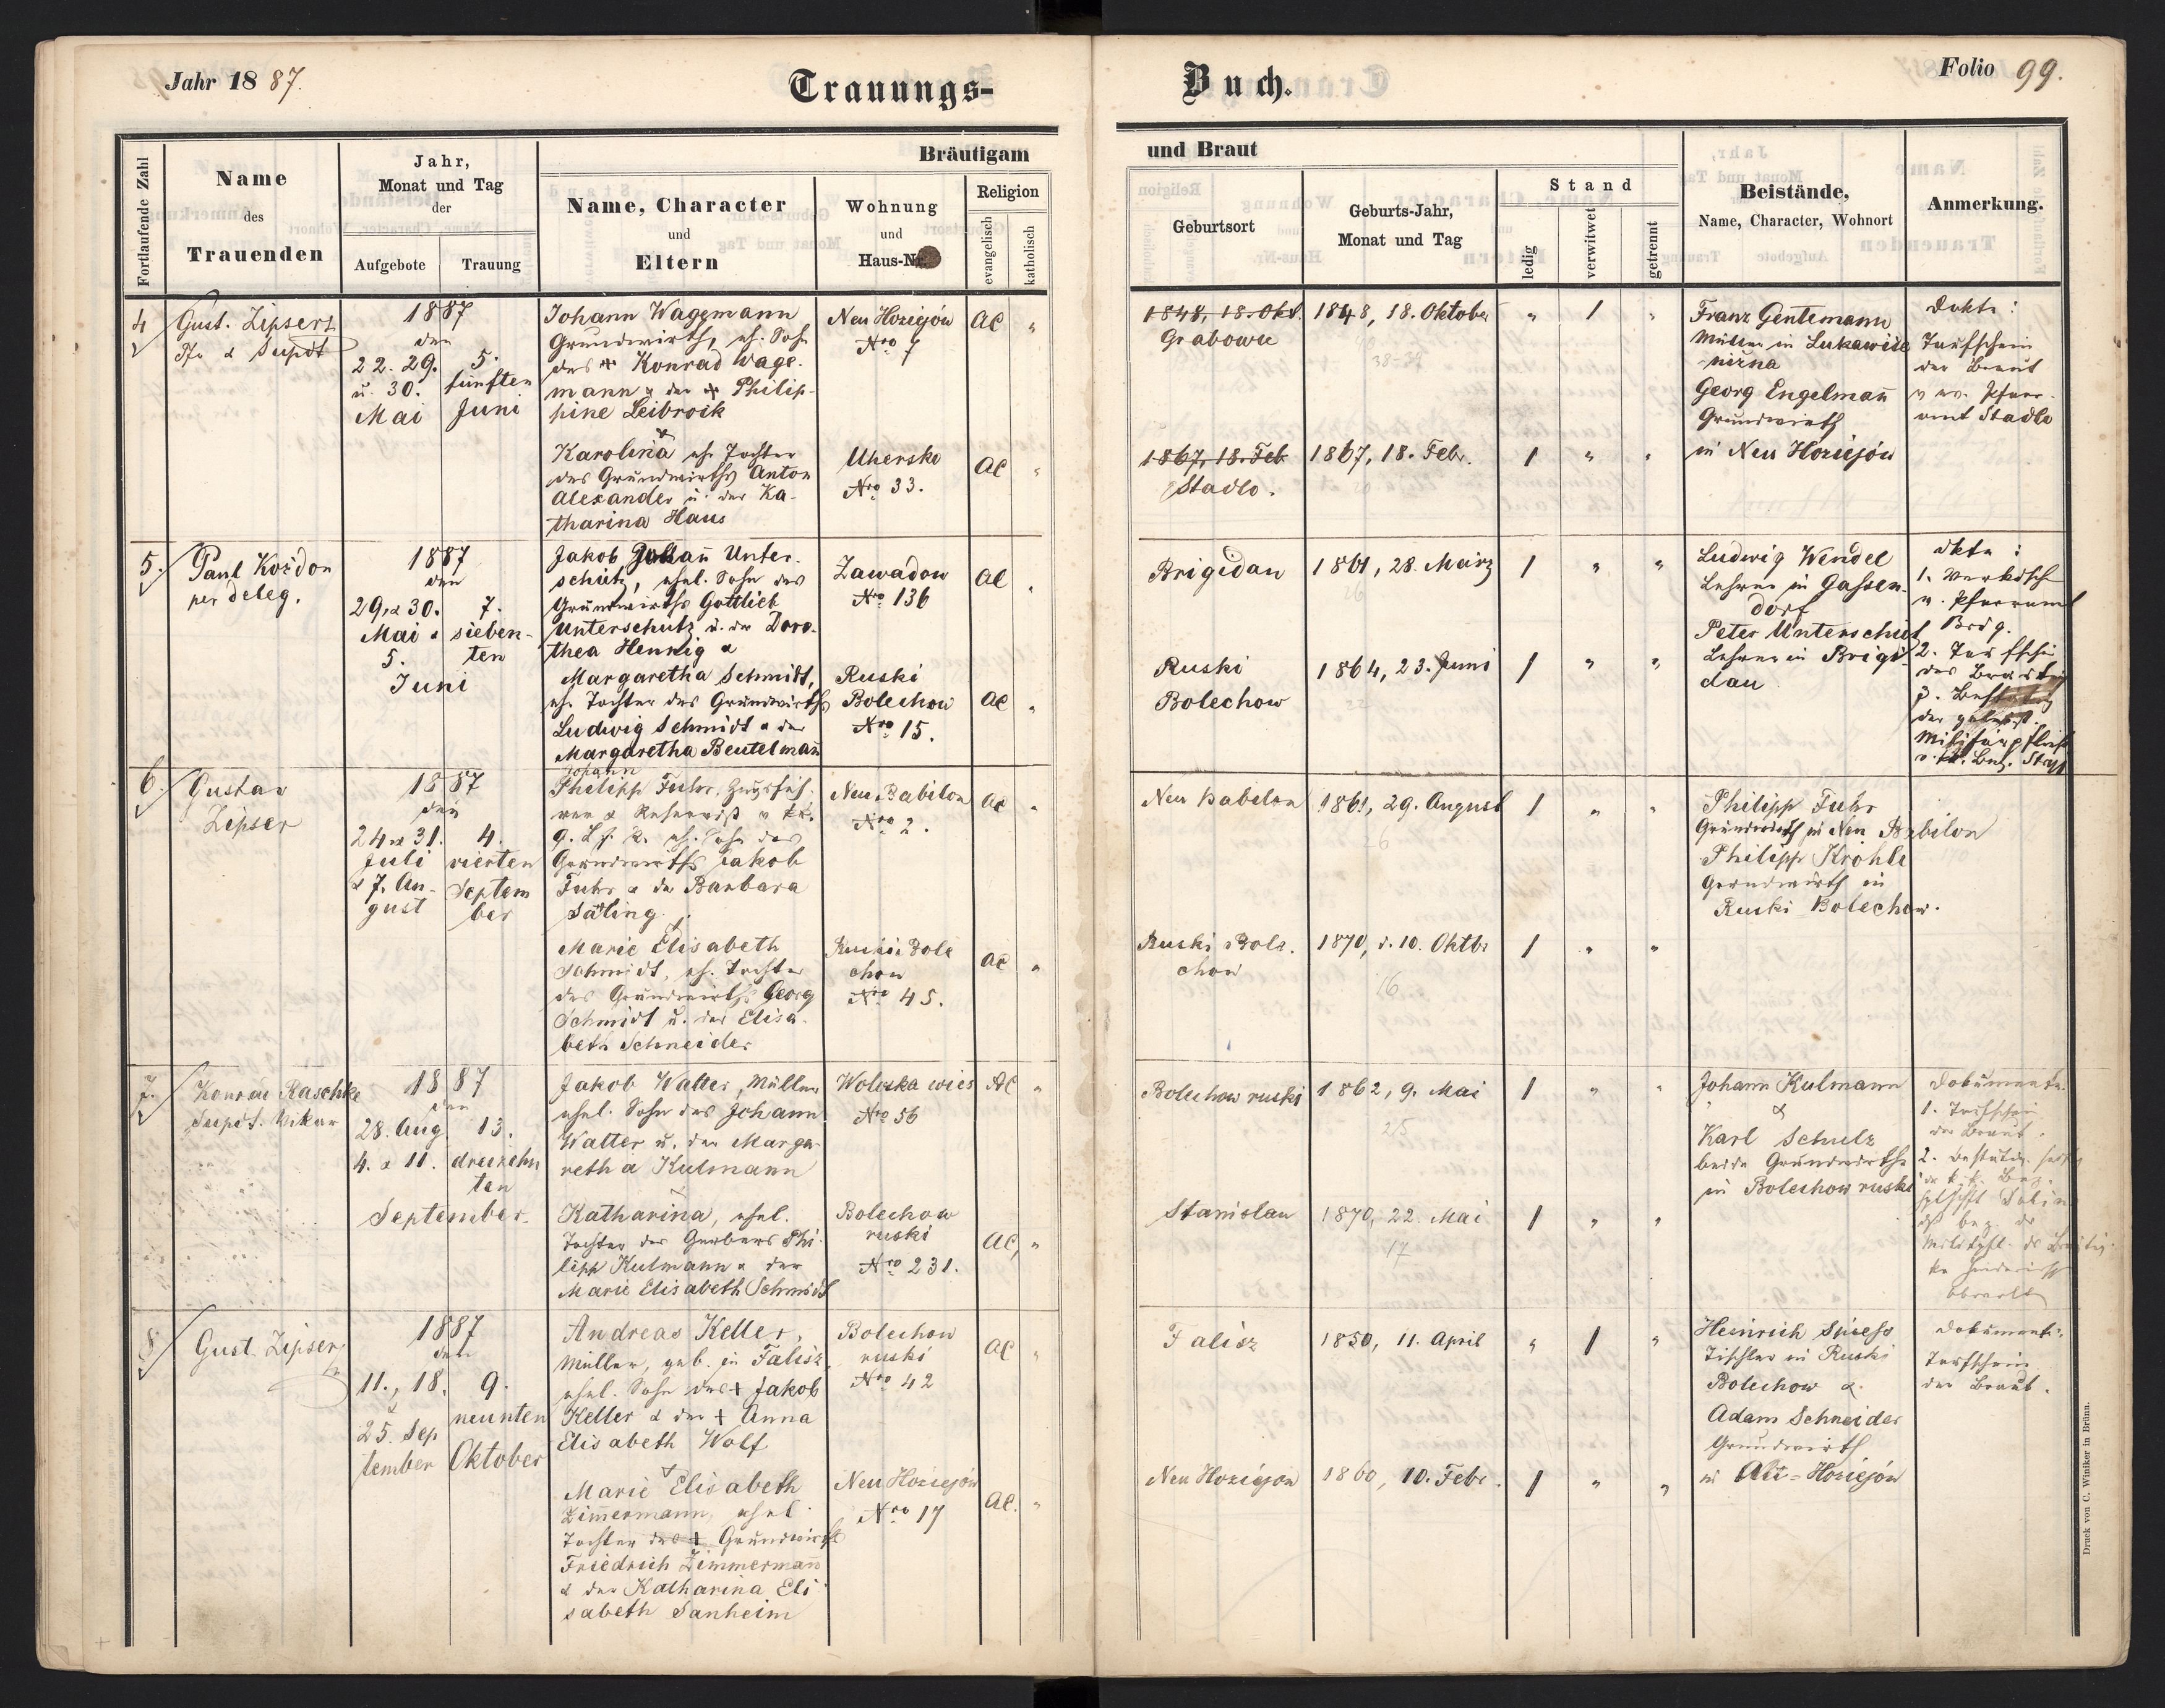 Jahr 1887.
Trauungs-
Buch.
Folio 99.
Fortlaufende Zahl
Name
des
Trauenden
Jahr,
Monat und Tag
der
Aufgebote
Trauung
Bräutigam
Name, Character
und
Eltern
Wohnung
und
Haus-Nr.
Religion
evangelisch
katholisch
und Braut
Geburtsort
Geburts-Jahr,
Monat und Tag
Stand
ledig
verwitwet
getrennt
Beistände,
Name, Character, Wohnort
Anmerkung.
4
Gust. Zipser
Pfr & Supdt
1887
den
22. 29.
u. 30.
Mai
5.
fünften
Juni
Johann Waggmann
Grundwirth, eh. Sohn
des + Konrad Wage-
mann & der + Philip-
pine Leibrock
Neu Hoziejów
Nro 7
AC "
1848, 18. Okt.
Grabowce
1848, 18. Oktober
38-39
" 1 "
Franz Gentemann
Müller in Lukawica
nizna
Georg Engelmañ
Grundwirth
in Neu Hoziejów
Dokte:
Taufschein
der Braut
v ev. Pfarr-
amt Stadlo
Karolina eh. Tochter
des Grundwirths Anton
Alexander u. der Ka-
tharina Haus
Uhersko
Nro 33.
AC "
1867, 18. Feb
Stadlo.
1867, 18. Febr.
1 " "
5.
Paul Kozdon
per deleg.
1887
den
29. & 30.
Mai &
5.
Juni
7.
sieben-
ten
Jakob Johañ Unter-
schütz, ehel. Sohn des
Grundwirths Gottlieb
Unterschütz u. der Doro-
thea Hennig &
Zawadow
Nro 136
AC "
Brigidau
1861, 28. März
26
1 " "
Ludwig Wendel
Lehrer in Gassen-
dorf
Peter Unterschüt
Lehrer in Brigi-
dau
dkte:
1.
v. Pfarramt
Brdg.
2. Taufschei
der Bräutig
3.
der
Militärpflicht
v. kk. Bez. Stryj
Margaretha Schmidt,
eh. Tochter des Grundwirths
Ludwig Schmidt & der
Margaretha Beutelmañ
Ruski
Bolechow
Nro 15.
AC "
Ruski
Bolechow
1864, 23. Juni
22
1 " "
6.
Gustav
Zipser
1887
den
24. & 31.
Juli
& 7. Au-
gust
4.
vierten
Septem
ber
Johann
Philipp Fuhr, Zugsfüh-
rer & Reservist v kk.
9. L. J. R. eh. Sohn des
Grundwirths Jakob
Fuhr & der Barbara
Säling.
Neu Babilon
Nro 2.
AC "
Neu Babilon
1861, 29. August
26
1 " "
Philipp Fuhr
Grundwirth in Neu Babilon
Philipp Kröhle
Grundwirth in
Ruski Bolechow.
Marie Elisabeth
Schmidt, eh. Tochter
des Grundwirths Georg
Schmidt u. der Elisa-
beth Schneider
Ruski Bole
chow
Nro 45.
AC "
Ruski Bole-
chow
1870, d. 10. Oktbr
16
1 " "
7.
Konrad Raschke
Supdt. Vikar
1887
den
28. Aug
4. & 11.
September
13.
dreizehn
ten
Jakob Walter, Müller
ehel. Sohn des Johann
Walter u. der Marga-
retha Kulmann
Woloska wies
Nro 56
AC "
Bolechow ruski
1862, 9. Mai
25
1 " "
Johann Kulmann
&
Karl Schulz
beide Grundwirthe
in Bolechow ruski
Dokumente:
1. Taufschein
der Braut.
Katharina, ehel.
Tochter des Gerbers Phi-
lipp Kulmann & der
Marie Elisabeth Schmidt
Bolechow
ruski
Nro 231.
AC, "
Stanislau
1870, 22. Mai
17
1 " "
8
Gust. Zipser
1887
den
11., 18.
&
25. Sep
tember
9.
neunten
Oktober
Andreas Keller,
Müller, geb. in Falisz,
ehel. Sohn des + Jakob
Keller & der + Anna
Elisabeth Wolf
Bolechow
ruski
Nro 42
AC "
Falisz
1850, 11. April
" 1 "
Heinrich Spiess
Tischler in Ruski
Bolechow &
Adam Schneider
Grundwirth
in Alt-Hoziejów
Dokumente:
Taufschein
der Braut.
Marie Elisabeth
Zim̄ermann, ehel.
Tochter des + Grundwirths
Friedrich Zimmermañ
& der Katharina Eli
sabeth Sanheim
Neu Hoziejów
Nro 17
AC. "
Neu Hoziejow
1860, 10. Febr.
1 " "
Druck von C. Winiker in Brünn.